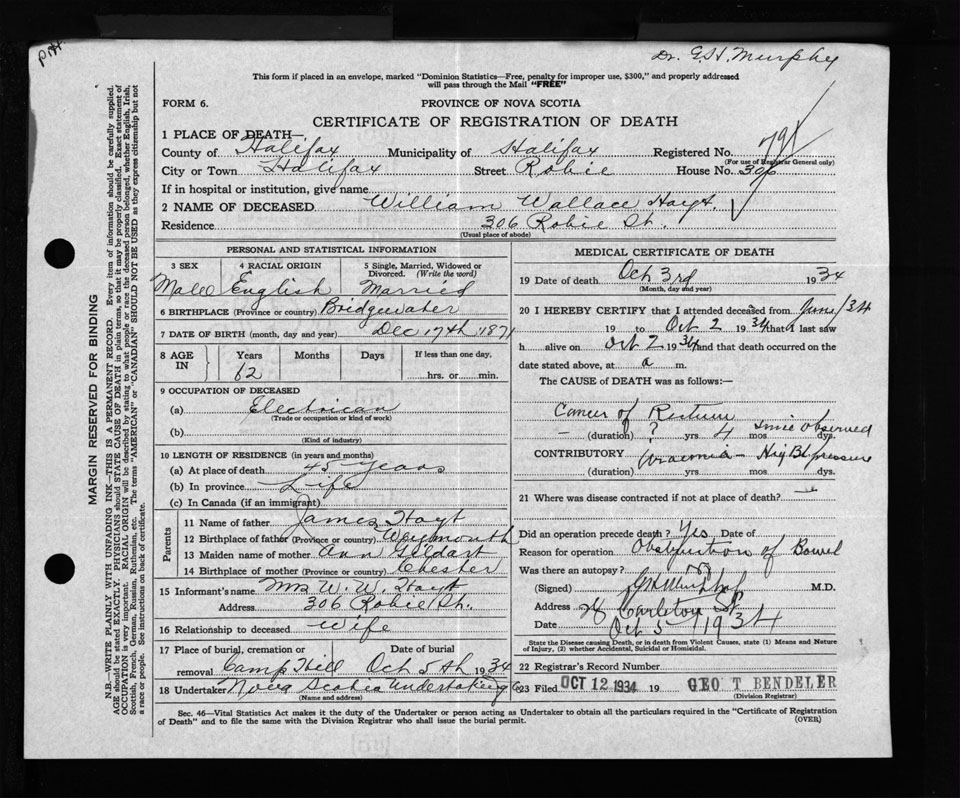 Dr. G.H. Murphy
This form if placed in an envelope, marked "Dominion Statistics—Free, penalty for improper use, $300," and properly addressed
will pass through the Mail "FREE"
FORM 6.
PROVINCE OF NOVA SCOTIA
CERTIFICATE OF REGISTRATION OF DEATH
1 PLACE OF DEATH—
County of Halifax Municipality of Halifax Registered No.
(For use of Registrar General only)
City or Town Halifax Street Robie House No. 306
If in hospital or institution, give name
2 NAME OF DECEASED William Wallace Hoyt.
Residence 306 Robie St.
(Usual place of abode)
MARGIN RESERVED FOR BINDING
N.B.—WRITE PLAINLY WITH UNFADING INK—THIS IS A PERMANENT RECORD. Every item of information should be carefully supplied.
AGE should be stated EXACTLY. PHYSICIANS should STATE CAUSE OF DEATH in plain terms, so that it may be properly classified. Exact statement of
OCCUPATION is very important. RACIAL ORIGIN will be described by stating to what people or race the deceased person belonged, whether English, Irish,
Scottish, French, German, Russian, Ruthenian, etc. The terms "AMERICAN" or "CANADIAN" SHOULD NOT BE USED as they express citizenship but not
a race or people. See instructions on back of certificate.
PERSONAL AND STATISTICAL INFORMATION
3 SEX 4 RACIAL ORIGIN 5 Single, Married, Widowed or
Divorced. (Write the word)
Male English Married
6 BIRTHPLACE (Province or country) Bridgewater
7 DATE OF BIRTH (month, day and year) Dec 17th 1871
8 AGE IN Years Months Days If less than one day,
62 hrs. or min.
9 OCCUPATION OF DECEASED
(a) Electrican
(Trade or occupation or kind of work)
(b)
(Kind of industry)
10 LENGTH OF RESIDENCE (in years and months)
(a) At place of death 45 years
(b) In province Life
(c) In Canada (if an immigrant)
Parents
11 Name of father James Hoyt
12 Birthplace of father (Province or country) Weymouth
13 Maiden name of mother Ann Geldart
14 Birthplace of mother (Province or country) Chester
15 Informant's name Mrs W. W. Hoyt
Address 306 Robie St.
16 Relationship to deceased Wife
17 Place of burial, cremation or Date of burial
removal Camp Hill Oct 5th 1934
18 Undertaker Nova Scotia Undertaking Co
(Name and address)
MEDICAL CERTIFICATE OF DEATH
19 Date of death Oct 3rd 1934
(Month, day and year)
20 I HEREBY CERTIFY that I attended deceased from June/34
19 to Oct 2 1934 that I last saw
h alive on Oct 2 1934 and that death occurred on the
date stated above, at a m.
The CAUSE of DEATH was as follows:—
Cancer of Rectum
(duration) ? yrs 4 mos. since observed dys.
CONTRIBUTORY Uraemia – Hig Bl pressure
(duration) yrs. mos. dys.
21 Where was disease contracted if not at place of death? —
Did an operation precede death? Yes Date of
Reason for operation Obstruction of Bowel
Was there an autopsy? no
(Signed) G H Murphy M.D.
Address Carleton St
Date Oct 5 1934
State the Disease causing Death, or in death from Violent Causes, state (1) Means and Nature
of Injury, (2) whether Accidental, Suicidal or Homicidal.
22 Registrar's Record Number
23 Filed OCT 12 1934 19 GEO T BENDELER
(Division Registrar)
Sec. 46—Vital Statistics Act makes it the duty of the Undertaker or person acting as Undertaker to obtain all the particulars required in the "Certificate of Registration
of Death" and to file the same with the Division Registrar who shall issue the burial permit.
(OVER)